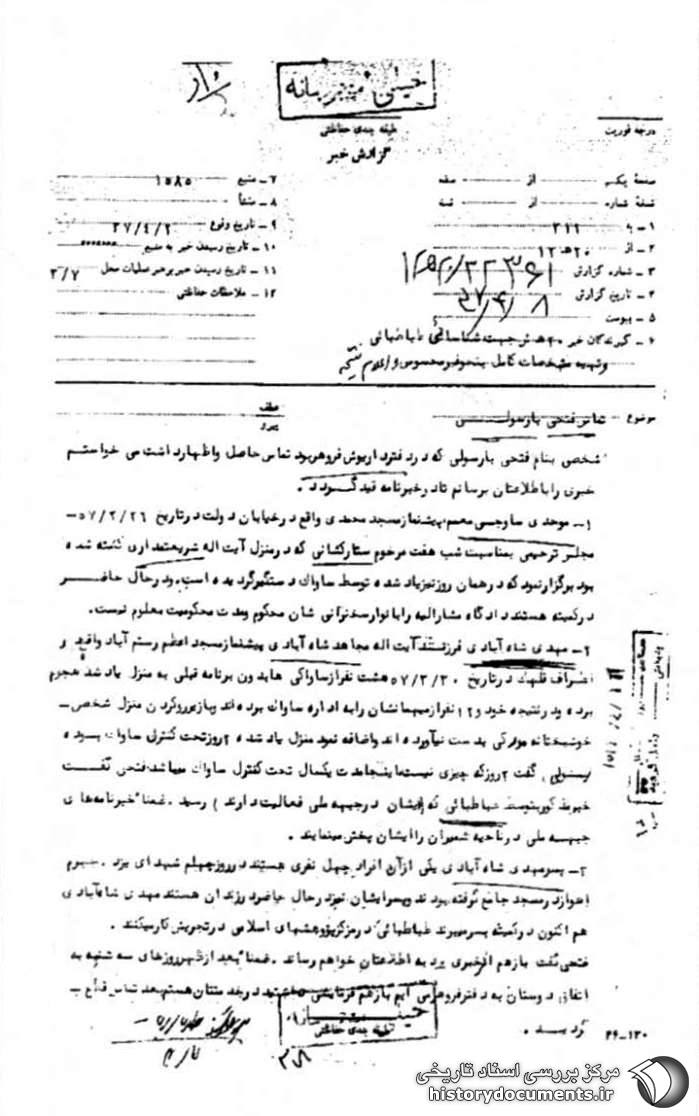 خیلی محرمانه
درجه فوریت
طبقه بندی حفاظتی
گزارش خبر
صفحه یکم از صفحه
نسخه شماره از نسخه
۱ـ به ۳۱۲
۲ـ از ۲۰ ه ۱۲
۳ـ شماره گزارش
۴ـ تاریخ گزارش ۳۷/۴/۸
۵ـ پیوست
۶ـ گیرندگان خبر
۷ـ منبع ۱۵۸۵
۸ـ منشأ
۹ـ تاریخ وقوع ۳۷/۴/۲
۱۰ـ تاریخ رسیدن خبر به منبع
۱۱ـ تاریخ رسیدن خبر برهبر عملیات محل ۳/۷
۱۲ـ ملاحظات حفاظتی
جهت شناسائی طباطبائی
وتهیه مشخصات کامل بنحو غیر محسوس و اعلام نتیجه
موضوع تماس فتحی با رسولی
شخصی بنام فتحی با رسولی که در دفتر داریوش فروهر بود تماس حاصل و اظهار داشت می خواستم
خبری را با طلاعتان برسانم تا در خبرنامه قید گردد .
۱ـ موحدی ساوجی معمم پیشنماز مسجد محمدی واقع در خیابان دولت در تاریخ ۵۷/۳/۲۶ ـ
مجلس ترحیمی بمناسبت شب هفت مرحوم ستارکشانی که در منزل آیت اله شریعتمداری کشته شده
بود برگزار نمود که در همان روز نیز یاد شده توسط ساواک دستگیر گردیده است ودر حال حاضر
در کمیته هستند دادگاه مشارالیه را با نوار سخنرانی شان محکوم ومدت محکومیت معلوم نیست.
۲ـ مهدی شاه آبادی فرزند آیت اله مجاهد شاه آبادی پیشنماز مسجد اعظم رستم آباد واقع در
اطراف قلهک در تاریخ ۵۷/۳/۳۰ هشت نفر از ساواکی ها بدون برنامه قبلی به منزل یاد شده هجوم
برده ودر نتیجه خود و ۱۲ نفر از میهمانشان را به اداره ساواک برده اند وبا زیرو رو کردن منزل شخص ـ
خوشبختانه مدرکی بدست نیاورده اند واضافه نمود منزل یاد شده ۲ روز تحت کنترل ساواک بوده
رسولی گفت ۲ روز که چیزی نیست اینجا مدت یکسال تحت کنترل ساواک میباشد فتحی گفت
خبر مذکور بتوسط طباطبائی که (ایشان در جبهه ملی فعالیت دارند) رسید . ضمناً خبرنامه های
جبهه ملی در ناحیه شمیران را ایشان پخش مینمایند .
۳ـ پسر مهدی شاه آبادی یکی از آن افراد چهل نفری هستند در روز چهلم شهدای یزد ، جهرم
اهواز در مسجد جامع گرفته بودند وپسر ایشان نیز در حال حاضر در زندان هستند مهدی شاه آبادی
هم اکنون در کمیته بسر میبرند طباطبائی در مرکز پژوهشهای اسلامی در تجریش کار میکنند .
فتحی گفت باز هم اگر خبری بود به اطلاعتان خواهم رساند . ضمناً بعد از ظهر روزهای سه شنبه به
اتفاق دوستان به دفتر فروهر می آیم باز هم فرمایشی داشتید در خدمتتان هستم بعد تماس قطع
گردید .
۲۶-۱۳۰
طبقه بندی حفاظتی
مرکز بررسی اسناد تاریخی
historydocuments.ir